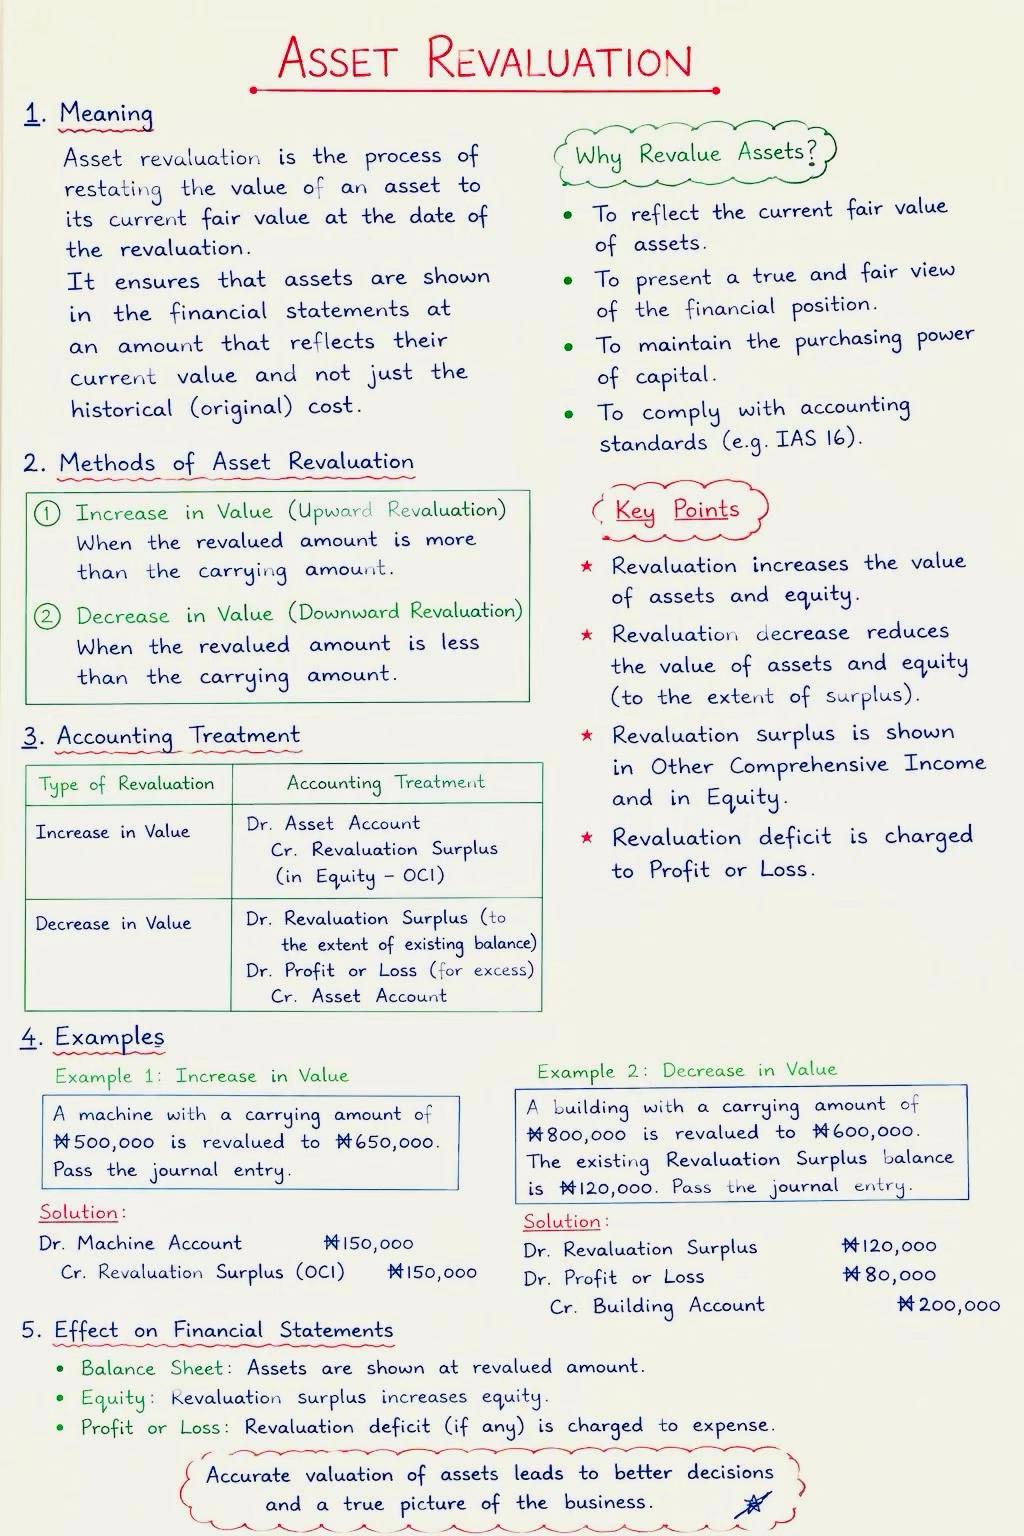 ASSET REVALUATION
1. Meaning
Asset revaluation is the process of
restating the value of an asset to
its current fair value at the date of
the revaluation.
It ensures that assets are shown
in the financial statements at
an amount that reflects their
current value and not just the
historical (original) cost.
Why Revalue Assets?
• To reflect the current fair value
of assets.
• To present a true and fair view
of the financial position.
• To maintain the purchasing power
of capital.
• To comply with accounting
standards (e.g. IAS 16).
2. Methods of Asset Revaluation
① Increase in Value (Upward Revaluation)
When the revalued amount is more
than the carrying amount.
② Decrease in Value (Downward Revaluation)
When the revalued amount is less
than the carrying amount.
Key Points
★ Revaluation increases the value
of assets and equity.
★ Revaluation decrease reduces
the value of assets and equity
(to the extent of surplus).
★ Revaluation surplus is shown
in Other Comprehensive Income
and in Equity.
★ Revaluation deficit is charged
to Profit or Loss.
3. Accounting Treatment
Type of Revaluation Accounting Treatment
Increase in Value
Dr. Asset Account
Cr. Revaluation Surplus
(in Equity – OCI)
Decrease in Value
Dr. Revaluation Surplus (to
the extent of existing balance)
Dr. Profit or Loss (for excess)
Cr. Asset Account
4. Examples
Example 1: Increase in Value
A machine with a carrying amount of
₦500,000 is revalued to ₦650,000.
Pass the journal entry.
Solution:
Dr. Machine Account ₦150,000
Cr. Revaluation Surplus (OCI) ₦150,000
Example 2: Decrease in Value
A building with a carrying amount of
₦800,000 is revalued to ₦600,000.
The existing Revaluation Surplus balance
is ₦120,000. Pass the journal entry.
Solution:
Dr. Revaluation Surplus ₦120,000
Dr. Profit or Loss ₦80,000
Cr. Building Account ₦200,000
5. Effect on Financial Statements
• Balance Sheet: Assets are shown at revalued amount.
• Equity: Revaluation surplus increases equity.
• Profit or Loss: Revaluation deficit (if any) is charged to expense.
Accurate valuation of assets leads to better decisions
and a true picture of the business.